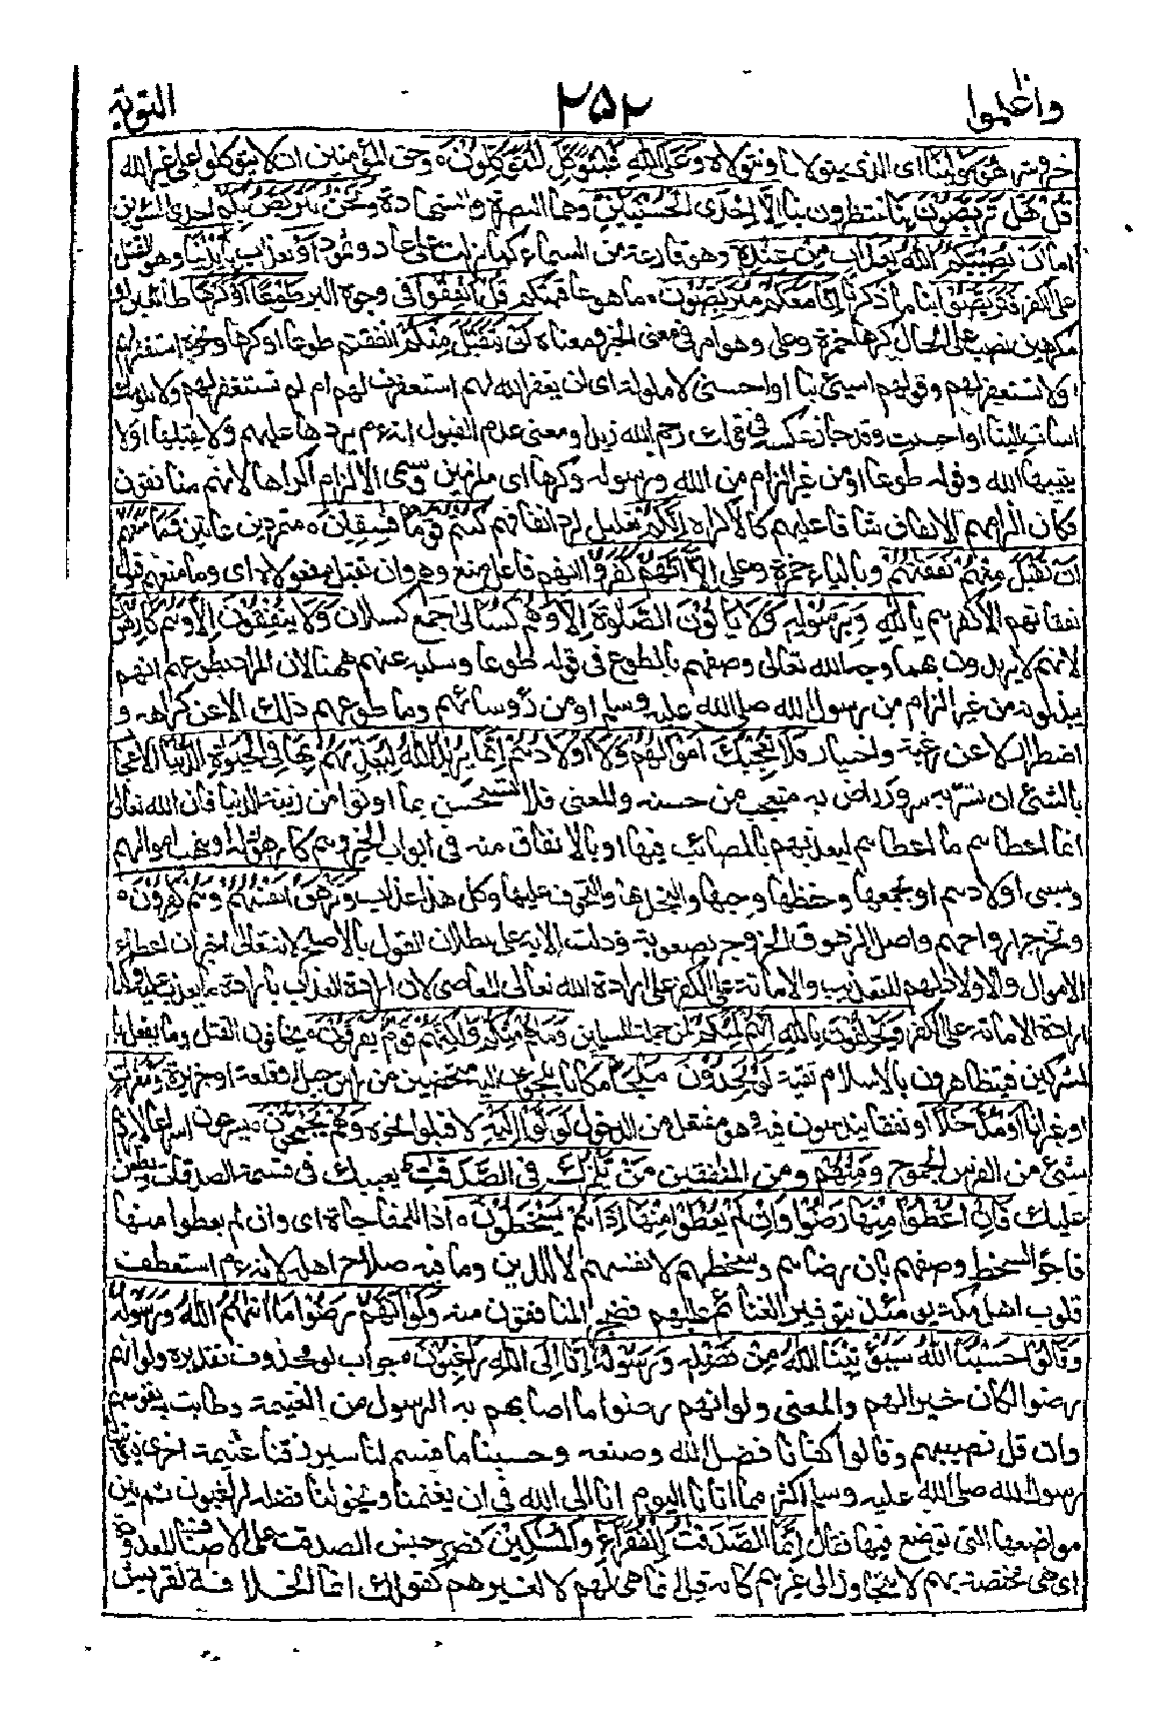 واعلموا ٢٥٢ التوبة
خير وشر هُوَ مَوْلٰىنَا اى الذى يتولانا ونتولاه وَعَلَى اللّٰهِ فَلْيَتَوَكَّلِ الْمُؤْمِنُوْنَ ه وحق المؤمنين ان لا يتوكلوا على غير الله
قُلْ هَلْ تَرَبَّصُوْنَ بِنَا تنتظرون بنا اِلَّا اِحْدَى الْحُسْنَيَيْنِ وهما النصرة والشهادة وَنَحْنُ نَتَرَبَّصُ بِكُمْ احدى السوئين
اما اَنْ يُّصِيْبَكُمُ اللّٰهُ بِعَذَابٍ مِّنْ عِنْدِهٖ وهو قارعة من السماء كما نزلت على عاد وثمود اَوْ بعذاب بِاَيْدِيْنَا وهو القتل
على الكفر فَتَرَبَّصُوْا بنا ما ذكرنا اِنَّا مَعَكُمْ مُّتَرَبِّصُوْنَ ه ما هو عاقبتكم قُلْ اَنْفِقُوْا فى وجوه البر طَوْعًا اَوْ كَرْهًا طائعين او
مكرهين نصب على الحال كرها حمزة وعلى وهو امر فى معنى الخبر ومعناه لَنْ يُّتَقَبَّلَ مِنْكُمْ انفقتم طوعا او كرها ونحوه استغفر لهم
او لا تستغفر لهم وقولهم اسيئى بنا او احسنى لا ملومة اى لن يغفر الله لهم استغفرت لهم ام لم تستغفر لهم ولا نلومك
اسأت الينا او احسنت وقد جاز عكسه فى قولك رحم الله زيدا ومعنى عدم القبول انه ءم يردها عليهم ولا يقبلها او لا
يثيبها الله وقوله طوعا او من غير الزام من الله ورسوله وكرها اى ملزمين وسمى الالزام اكراها لانهم منافقون
فكان الزامهم الانفاق شاقا عليهم كالاكراه اِنَّكُمْ تعليل لرد انفاقهم كُنْتُمْ قَوْمًا فٰسِقِيْنَ ه متمردين عاتين وَمَا مَنَعَهُمْ
اَنْ تُقْبَلَ مِنْهُمْ نَفَقٰتُهُمْ وبالياء حمزة وعلى اِلَّا اَنَّهُمْ كَفَرُوْا انهم فاعل منع وهو وان تقبل مفعولاه اى وما منعهم قبول
نفقاتهم الا كفرهم بِاللّٰهِ وَبِرَسُوْلِهٖ وَلَا يَاْتُوْنَ الصَّلٰوةَ اِلَّا وَهُمْ كُسَالٰى جمع كسلان وَلَا يُنْفِقُوْنَ اِلَّا وَهُمْ كٰرِهُوْنَ
لانهم لا يريدون بهما وجه الله تعالى وصفهم بالطوع فى قوله طوعا وسلبه عنهم ههنا لان المراد بطوعهم انهم
يبذلونه من غير الزام من رسول الله صلى الله عليه وسلم او من رؤسائهم وما طوعهم ذلك الا عن كراهة و
اضطرار لا عن رغبة واختيار فَلَا تُعْجِبْكَ اَمْوَالُهُمْ وَلَا اَوْلَادُهُمْ اِنَّمَا يُرِيْدُ اللّٰهُ لِيُعَذِّبَهُمْ بِهَا فِى الْحَيٰوةِ الدُّنْيَا الاعجاب
بالشئ ان تسر به سرور راض به متعجب من حسنه والمعنى فلا تستحسن بما اوتوا من زينة الدنيا فان الله تعالى
انما اعطاهم ما اعطاهم ليعذبهم بالمصائب فيها او بالانفاق منه فى ابواب الخير وهم كارهون له او بنهب اموالهم
وسبى اولادهم او بجمعها وحفظها وحبها والبخل بها والخوف عليها وكل هذا عذاب وَتَزْهَقَ اَنْفُسُهُمْ وَهُمْ كٰفِرُوْنَ ه
وتخرج ارواحهم واصل الزهوق الخروج بصعوبة ودلت الاية على بطلان القول بالاصلح لانه تعالى اخبر ان اعطاء
الاموال والاولاد لهم للتعذيب والاماتة على الكفر وعلى ارادة الله تعالى المعاصى لان ارادة العذاب بارادة ما يعذب عليه وكذا
ارادة الاماتة على الكفر وَيَحْلِفُوْنَ بِاللّٰهِ اِنَّهُمْ لَمِنْكُمْ لمن جملة المسلمين وَمَا هُمْ مِّنْكُمْ وَلٰكِنَّهُمْ قَوْمٌ يَّفْرَقُوْنَ ه يخافون القتل وما يفعل با
لمشركين فيتظاهرون بالاسلام تقية لَوْ يَجِدُوْنَ مَلْجَاً مكانا يلجئون اليه متحصنين من رأس جبل او قلعة او جزيرة اَوْ مَغٰرٰتٍ
او غيرانا اَوْ مُدَّخَلًا او نفقا يندسون فيه وهو مفتعل من الدخول لَوَلَّوْا اِلَيْهِ لاقبلوا نحوه وَهُمْ يَجْمَحُوْنَ يسرعون اسراعا لا يردهم
شئ من الفرس الجموح وَمِنْهُمْ ومن المنٰفقين مَّنْ يَّلْمِزُكَ فِى الصَّدَقٰتِ يعيبك فى قسمة الصدقات ويطعن
عليك فَاِنْ اُعْطُوْا مِنْهَا رَضُوْا وَاِنْ لَّمْ يُعْطَوْا مِنْهَا اِذَا هُمْ يَسْخَطُوْنَ ه اذا للمفاجاة اى وان لم يعطوا منها
فاجؤا السخط وصفهم بان رضاهم وسخطهم لانفسهم لا للدين وما فيه صلاح اهله لانه ءم استعطف
قلوب اهل مكة يومئذ بتوفير الغنائم عليهم فضجر المنافقون منه وَلَوْ اَنَّهُمْ رَضُوْا مَا اٰتٰهُمُ اللّٰهُ وَرَسُوْلُهٗ
وَقَالُوْا حَسْبُنَا اللّٰهُ سَيُؤْتِيْنَا اللّٰهُ مِنْ فَضْلِهٖ وَرَسُوْلُهٗ اِنَّا اِلَى اللّٰهِ رٰغِبُوْنَ ه جواب لو محذوف تقديره ولو انهم
رضوا لكان خيرا لهم والمعنى ولو انهم رضوا ما اصابهم به الرسول من الغنيمة وطابت به نفوسهم
وان قل نصيبهم وقالوا كفانا فضل الله وصنعه وحسبنا ما قسم لنا سيرزقنا غنيمة اخرى فيؤتينا
رسول الله صلى الله عليه وسلم اكثر مما اتانا اليوم انا الى الله فى ان يغنمنا ويخولنا فضله لراغبون ثم بين
مواضعها التى توضع فيها فقال اِنَّمَا الصَّدَقٰتُ لِلْفُقَرَآءِ وَالْمَسٰكِيْنِ قصر جنس الصدقات على الاصناف المعدودة
اى هى مختصة بهم لا تتجاوز الى غيرهم كانه قيل انما هى لهم لا لغيرهم كقولك انما الخلافة لقريش